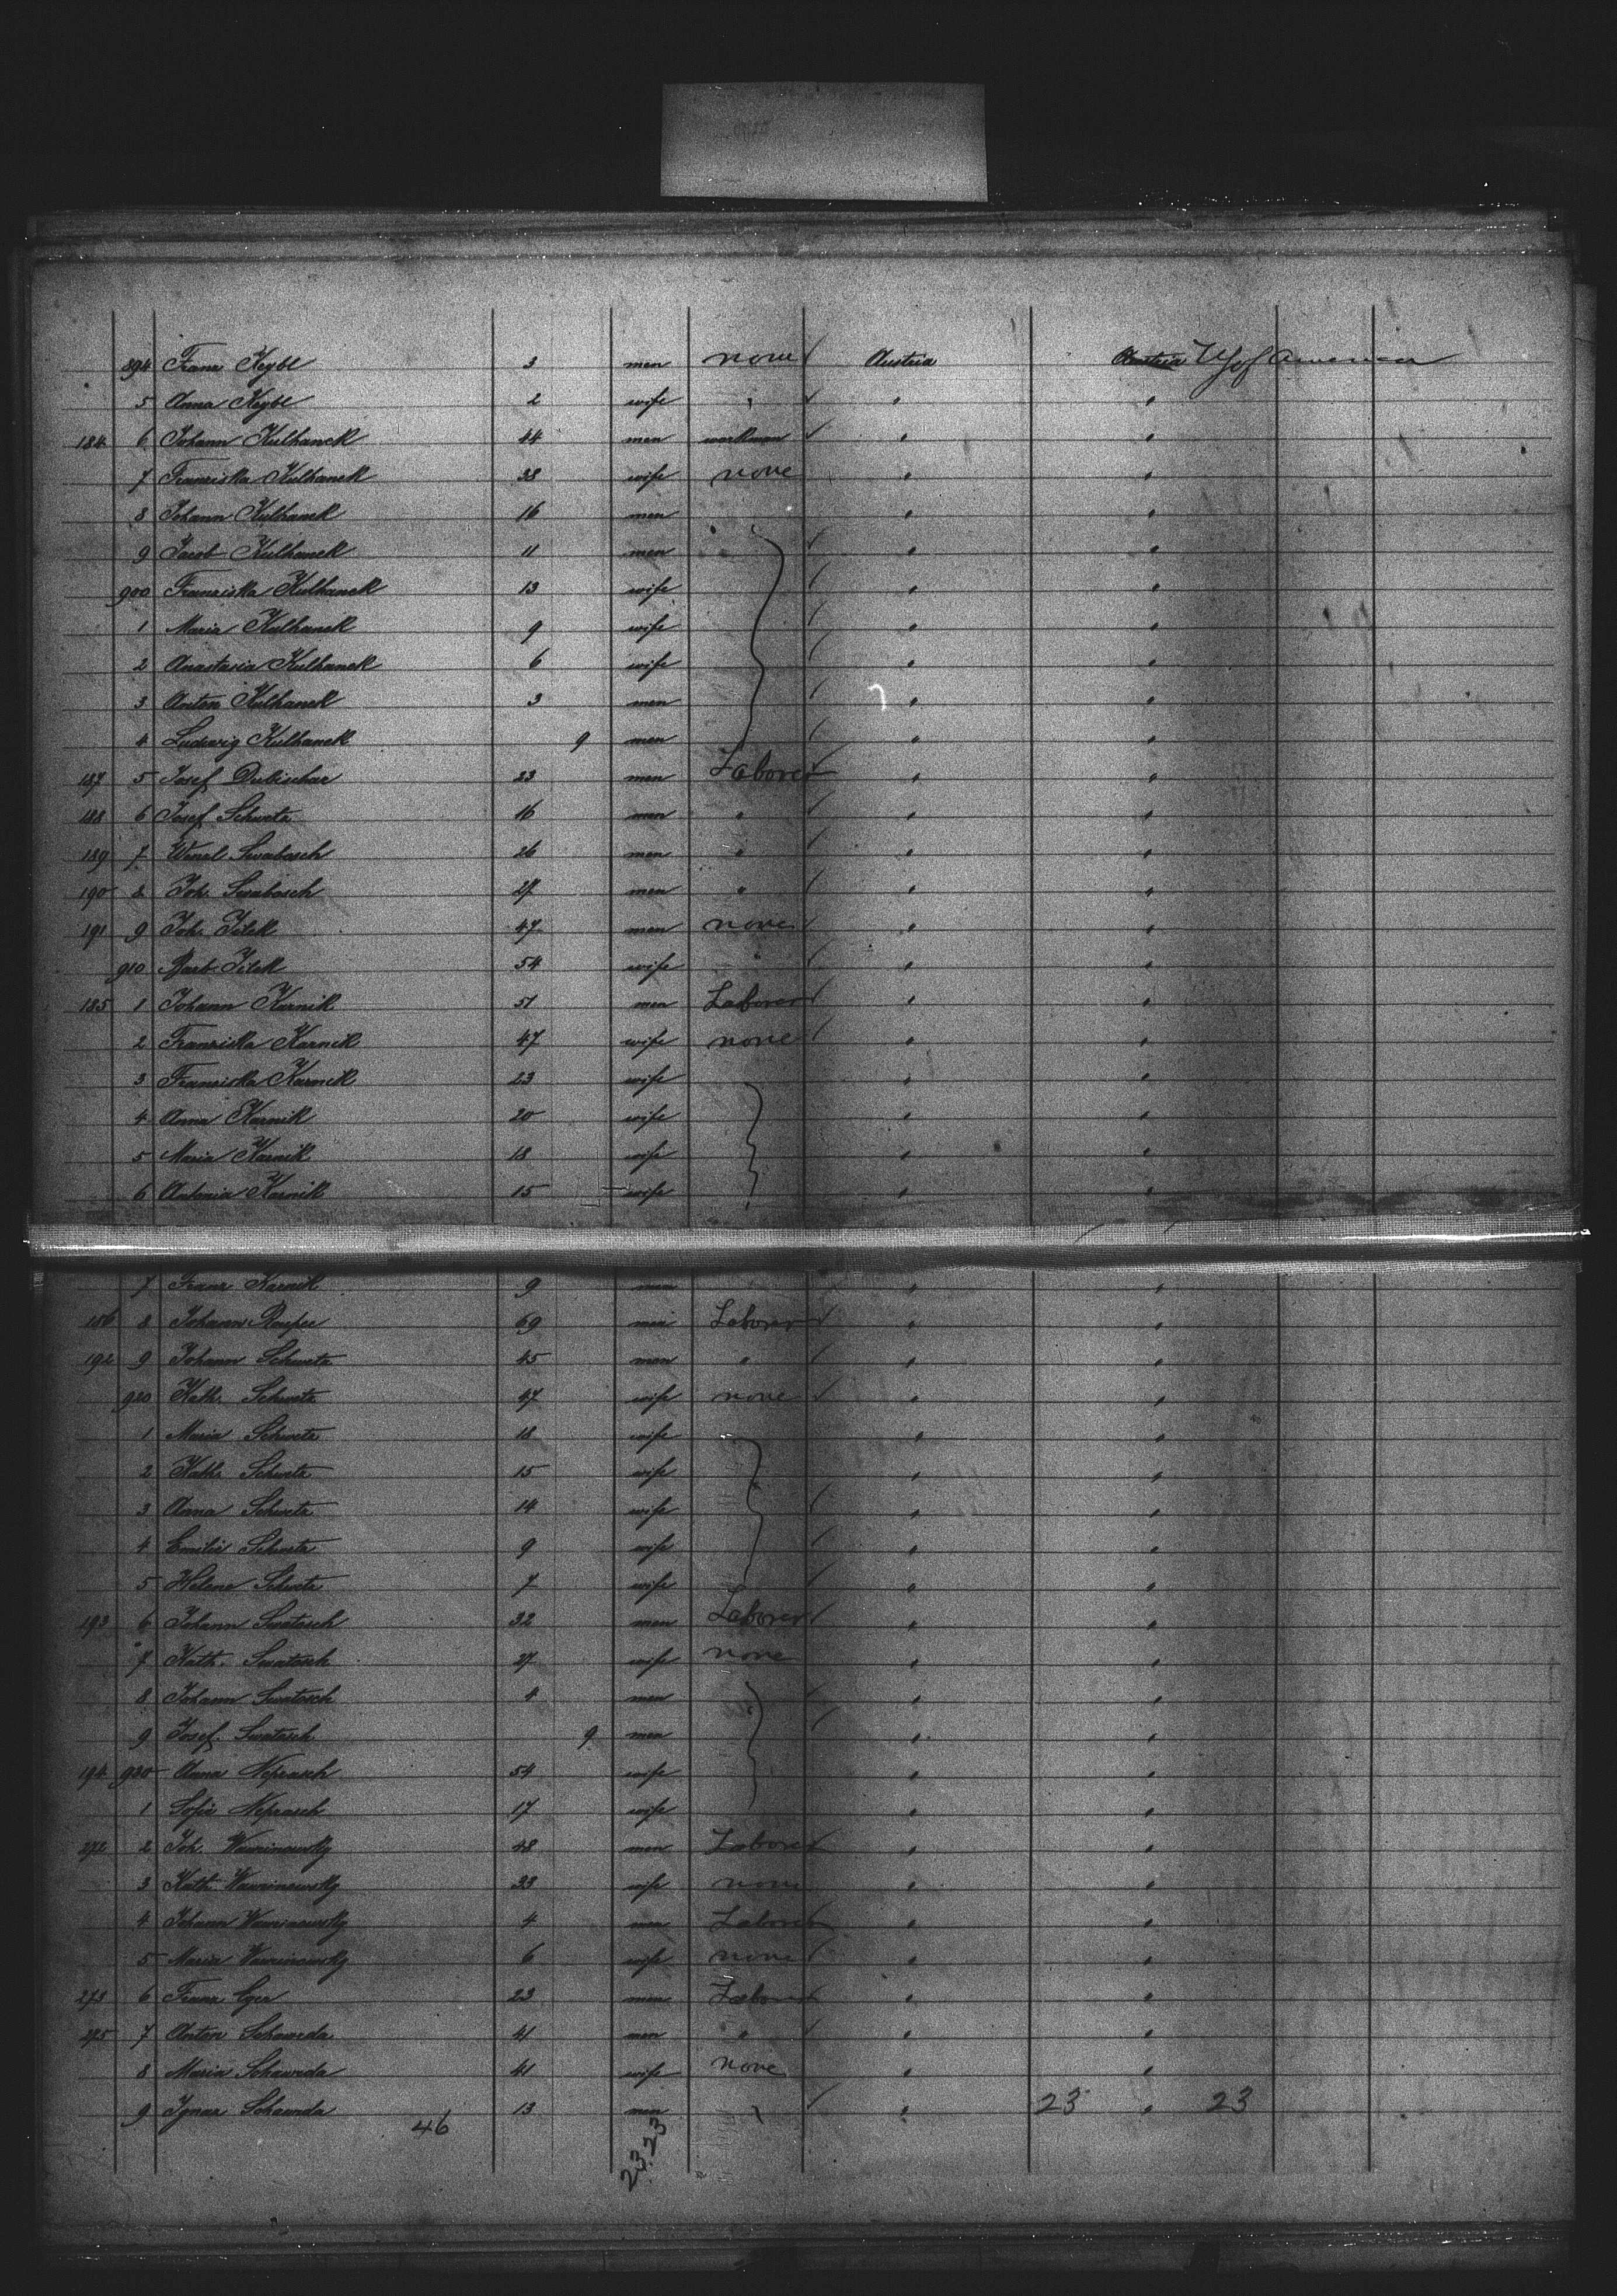 894 Franz Kygbl 3 men none Austria Austria US of America
5 Anna Kygbl 2 wife " " "
184 6 Johann Kulhanek 44 men workman " "
7 Franziska Kulhanek 38 wife none " "
8 Johann Kulhanek 16 men " "
9 Jacob Kulhanek 11 men " "
900 Franziska Kulhanek 13 wife " "
1 Maria Kulhanek 9 wife " "
2 Anastasia Kulhanek 6 wife " "
3 Anton Kulhanek 3 men " "
4 Ludwig Kulhanek 9 men " "
187 5 Josef Dubischar 23 men Laborer " "
188 6 Josef Schwetz 16 men " " "
189 7 Wenzl Swabosch 26 men " " "
190 8 Joh. Swabosch 27 men " " "
191 9 Joh. Jilek 47 men none " "
910 Barb. Jilek 54 wife " " "
185 1 Johann Karnik 51 men Laborer " "
2 Franziska Karnik 47 wife none " "
3 Franziska Karnik 23 wife " "
4 Anna Karnik 20 wife " "
5 Maria Karnik 18 wife " "
6 Antonia Karnik 15 wife " "
7 Franz Karnik 9 men " "
186 8 Johann 69 men Laborer " "
192 9 Johann Schwetz 45 men " " "
920 Kath. Schwetz 47 wife none " "
1 Maria Schwetz 18 wife " "
2 Kath. Schwetz 15 wife " "
3 Anna Schwetz 14 wife " "
4 Emilie Schwetz 9 wife " "
5 Helene Schwetz 7 wife " "
193 6 Johann Swatosch 32 men Laborer " "
7 Kath. Swatosch 27 wife none " "
8 Johann Swatosch 4 men " "
9 Josef Swatosch 9 men " "
194 930 Anna Neprasch 54 wife " "
1 Sofie Neprasch 17 wife " "
272 2 Joh. Wawrinowsky 48 men Laborer " "
3 Kath. Wawrinowsky 33 wife none " "
4 Johann Wawrinowsky 4 men Laborer " "
5 Maria Wawrinowsky 6 wife none " "
273 6 Franz 23 men Laborer " "
275 7 Anton Schawrda 41 men " " "
8 Maria Schawrda 41 wife none " "
9 Ignaz Schawrda 13 men " " 23 " 23
46 23.23